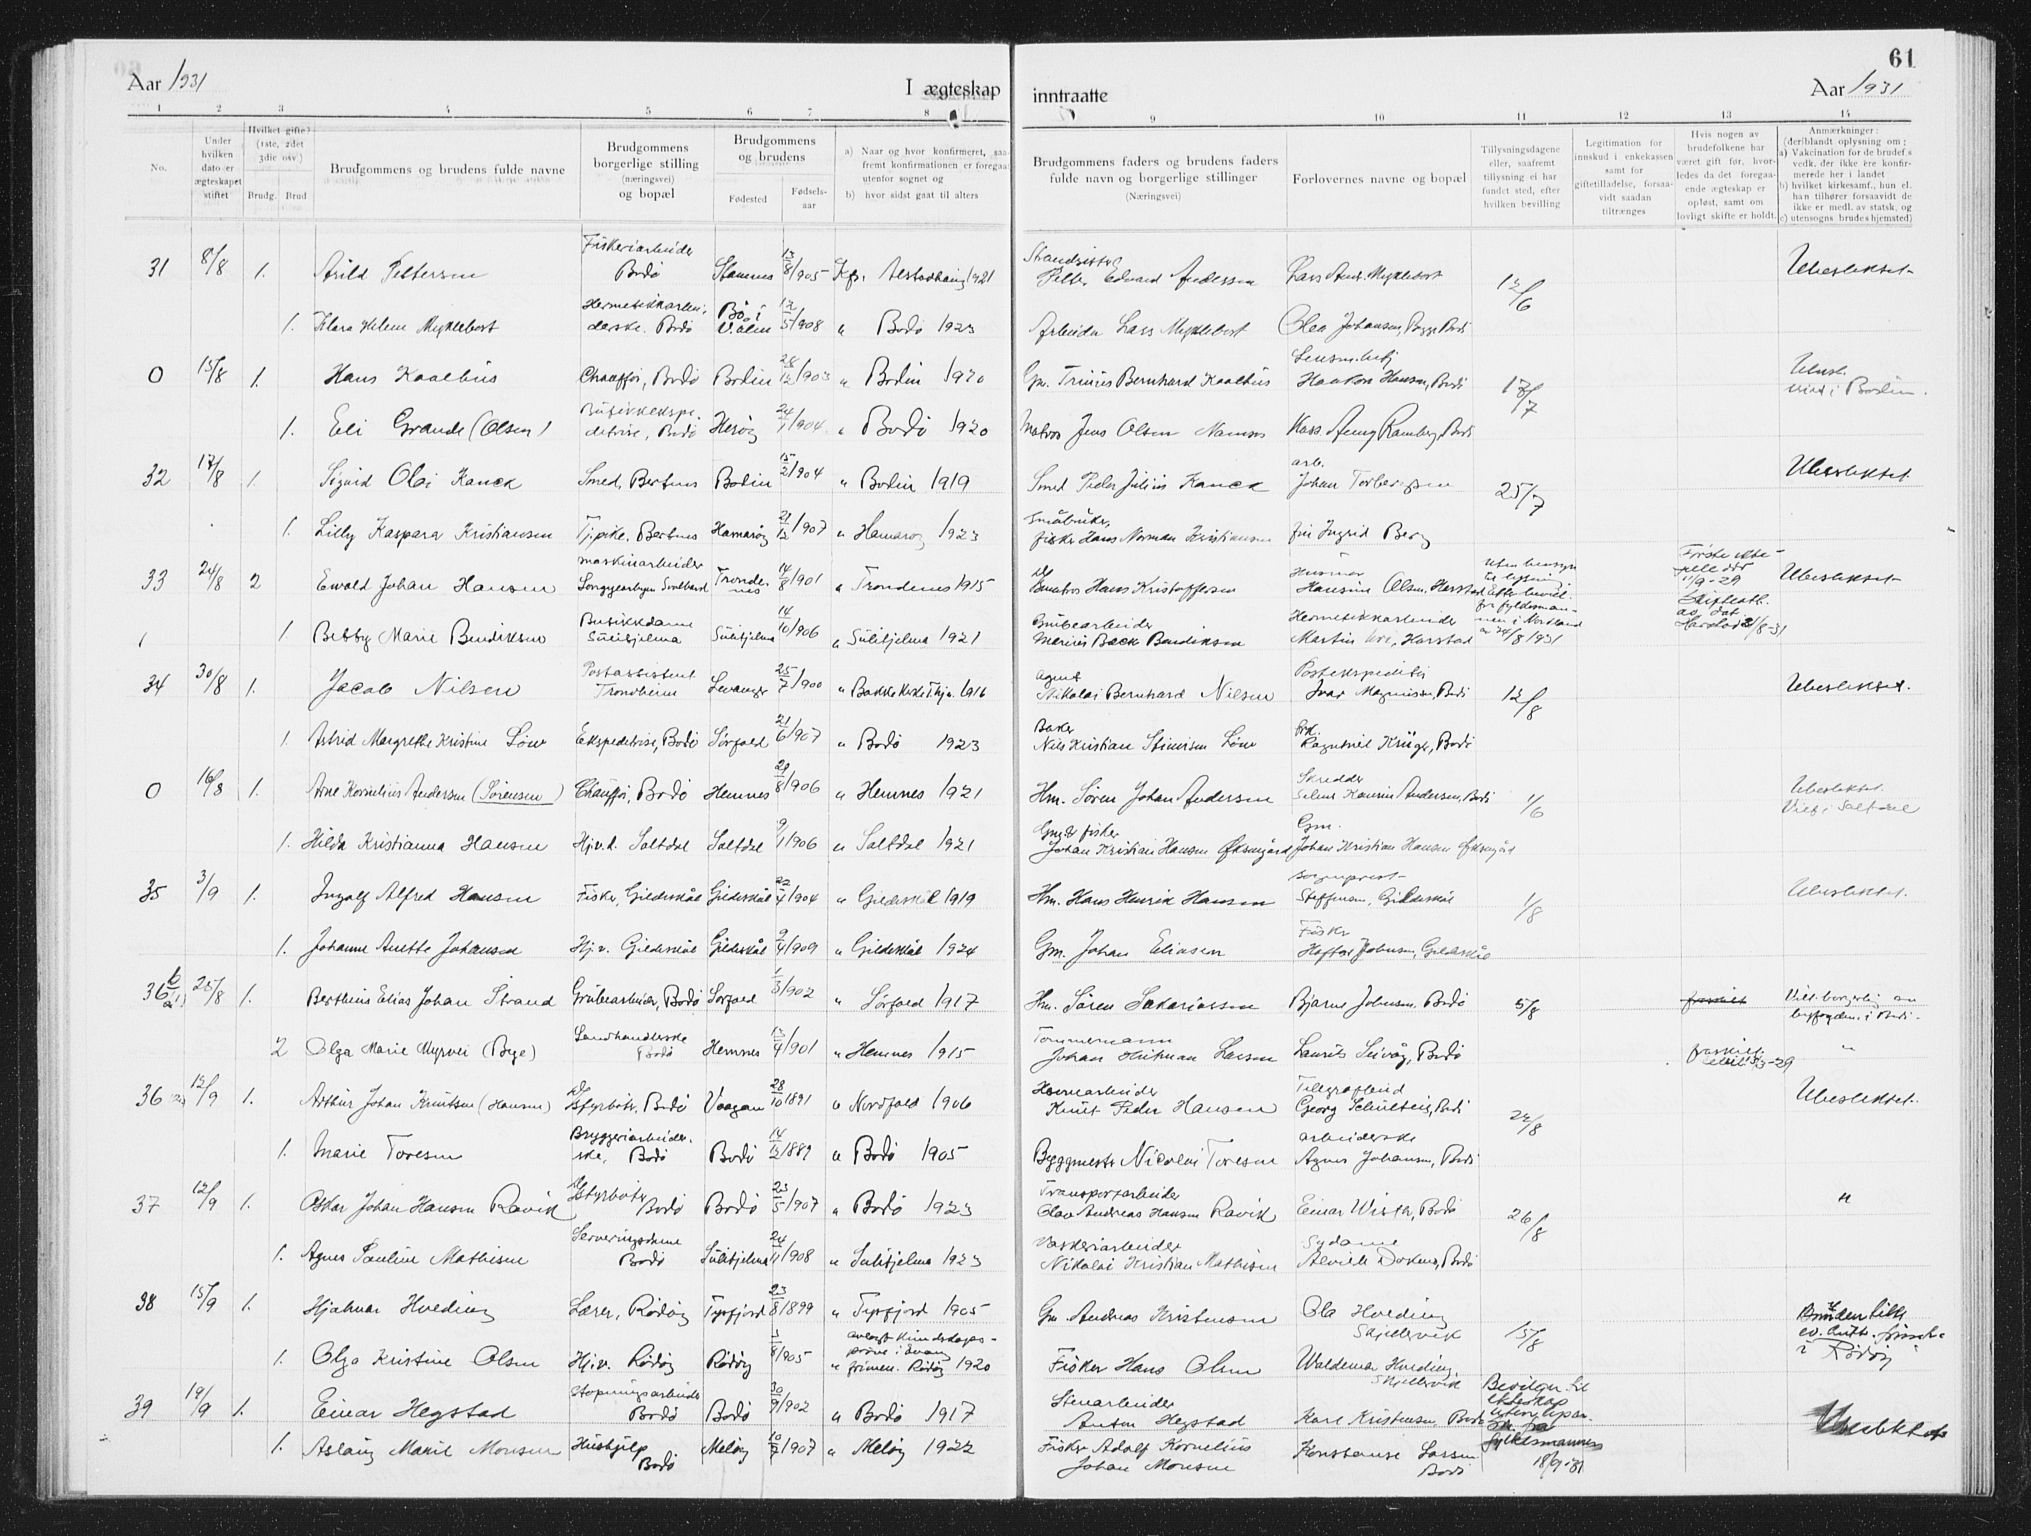 61
Aar 1931
I ægteskap inntraatte
Aar 1931
1 2 3 4 5 6 7 8 9 10 11 12 13 14
No.
Under hvilken dato er ægteskapet stiftet
Hvilket gifte? (1ste, 2det 3die osv.)
Brudg. Brud
Brudgommens og brudens fulde navne
Brudgommens borgerlige stilling (næringsvei) og bopæl
Brudgommens og brudens
Fødested
Fødsels-aar
a) Naar og hvor konfirmeret, saa-
fremt konfirmationen er foregaa
utenfor sognet og
b) hvor sidst gaat til alters
Brudgommens faders og brudens faders
fulde navn og borgerlige stillinger
(Næringsvei)
Forlovernes navne og bopæl
Tillysningsdagene
eller, saafremt
tillysning ei har
fundet sted, efter
hvilken bevilling
Legitimation for
innskud i enkekassen
samt for
giftetilladelse, forsaa-
vidt saadan
tiltrænges
Hvis nogen av
brudefolkene har
været gift før, hvor-
ledes da det foregaa-
ende ægteskap er
opløst, samt om
lovligt skifte er holdt.
Anmærkninger:
(deriblandt oplysning om;
a) Vakcination for de brudef.s
vedk. der ikke ere konfir-
merede her i landet
b) hvilket kirkesamf., hun el.
han tilhører forsaavidt de
ikke er medl. av statsk. og
c) utensogns brudes hjemsted)
31 8/8 1. Arild Pettersen Fiskeriarbeider Bodø Stamnes 13/8 1905 Kfr. Alstadhaug 1921 Petter Edvard Andersen Lars And. Myklebost 12/6 Ubeslektet.
1. Klara Helene Myklebost Bodø 12/5 1908 " Bodø 1923 Arbeider Lars Myklebost Olea Johansen, Bodø
0 15/8 1. Hans Kaalhus Chauffør, Bodø Bodin 1903 " Bodin 1920 Gm. Bernhard Kaalhus Haakon Hansen, Bodø 17/7 Ubesl. viet i Bodin.
1. Eli Grande (Olsen) Bodø Herøy 24/1 1904 " Bodø 1920 Matros Jens Olsen Ramberg, Bodø
32 17/8 1. Sigurd Olai Kanck Smed, Bertnes Bodin 15/2 1904 " Bodin 1919 Smed Peder Julius Kanck arb. Johan Torbergsen 25/7 Ubeslektet.
1. Lilly Kaspara Kristiansen Tj.pike, Bertnes Hamarøy 21/12 1907 " Hamarøy 1923 Småbruker, fisker Hans Norman Kristiansen fru Ingrid Berg
33 24/8 2 Ewald Johan Hansen maskinarbeider Longyearbyen Svalbard Trondenes 14/8 1901 " Trondenes 1915 Hans Kristoffersen Hansine Olsen, Harstad Ubeslektet.
1 Bebby Marie Bendiksen Butikkdame Sulitjelma Sulitjelma 14/10 1906 " Sulitjelma 1921 Grubearbeider Marius Back Bendiksen Hermetikkarbeider Harstad
34 30/8 1. Jacob Nilsen Postassistent Trondheim Levanger 25/7 1900 1916 Agent Nikolai Bernhard Nilsen Postekspeditør Ivar Magnussen, Bodø 13/8 Ubeslektet.
1. Astrid Margrethe Kristine Løw Ekspeditrise, Bodø Sørfold 21/6 1907 " Bodø 1923 Baker Nils Kristian Løw frk. Ragnhild Krüger, Bodø
0 16/8 1. Arne Kornelius Andersen (Sørensen) Chauffør, Bodø Hemnes 29/8 1906 " Hemnes 1921 Hm. Søren Johan Andersen Skredder Andersen, Bodø 1/6 Ubeslektet. Viet i Saltdal
1. Hilda Kristianna Hansen Hj.v.d. Saltdal Saltdal 9/1 1906 " Saltdal 1921 Gm. & fisker Johan Kristian Hansen Øksengård Gm. Johan Kristian Hansen Øksengård
35 3/9 1. Ingolf Alfred Hansen Fisker, Gildeskål Gildeskål 22/4 1904 " Gildeskål 1919 Hm. Hans Henrik Hansen sogneprest Steffensen, Gildeskål 1/8 Ubeslektet.
1. Johanne Anette Johansen Hj.v. Gildeskål Gildeskål 9/4 1909 " Gildeskål 1924 Gm. Johan Eliasen Fisker Johnsen, Gildeskål
36 25/8 1. Berthius Elias Johan Strand Grubearbeider, Bodø Sørfold 1/3 1902 " Sørfold 1917 Hm. Søren Sakariassen Bjarne Johnsen, Bodø 5/8 Viet borgerlig av byfogden i Bodø.
2 Olga Marie Myrvei (Bye) Landhandlerske Bodø Hemnes 13/4 1901 " Hemnes 1915 Tømmermann Johan Larsen Laurits Seivåg, Bodø "
36 12/9 1. Arthur Johan Knutsen (Hansen) Styrbor, Bodø Vaagan 28/10 1891 " Nordfold 1906 Havnearbeider Knut Peder Hansen Telegrafbud Georg Schulteis, Bodø 22/8 Ubeslektet.
1. Marie Toresen Bryggeriarbeiderske, Bodø Bodø 14/12 1889 " Bodø 1905 Byggmester Nicolai Toresen arbeiderske Agnes Johansen, Bodø
37 12/9 1. Oskar Johan Hansen Ravik Bodø Bodø 23/5 1907 " Bodø 1923 Transportarbeider Olav Andreas Hansen Ravik Einar Wister, Bodø 26/8 "
1. Agnes Pauline Mathisen Serveringsdame Bodø Sulitjelma 24/11 1908 " Sulitjelma 1923 Vaskeriarbeider Nikolai Kristian Mathisen Sydame Bodø
38 15/9 1. Hjalmar Hveding Lærer, Rødøy Tysfjord 23/8 1899 " Tysfjord 1905 Gm Andreas Kristensen Ola Hveding Skjellevik 15/8 Bruden tilh. ev. luth. frimenighet i Rødøy
1. Olga Kristine Olsen Hj.v. Rødøy Rødøy 3/8 1905 avlagt kundskapsprøve i evang. frimen. Rødøy 1920 Fisker Hans Olsen Waldemar Hveding Skjellevik
39 19/9 1. Einar Hegstad Støperiarbeider Bodø Bodø 30/9 1902 " Bodø 1917 Stenarbeider Anton Hegstad Karl Kristensen, Bodø Bevilgn. til ekteskap uten lysn. fylkesmannen 18/9 31 Ubeslektet
1. Aslaug Marie Monsen Hushjelp Bodø Meløy 1907 " Meløy 1922 Fisker Adolf Kornelius Johan Monsen Konstanse Larsen Bodø